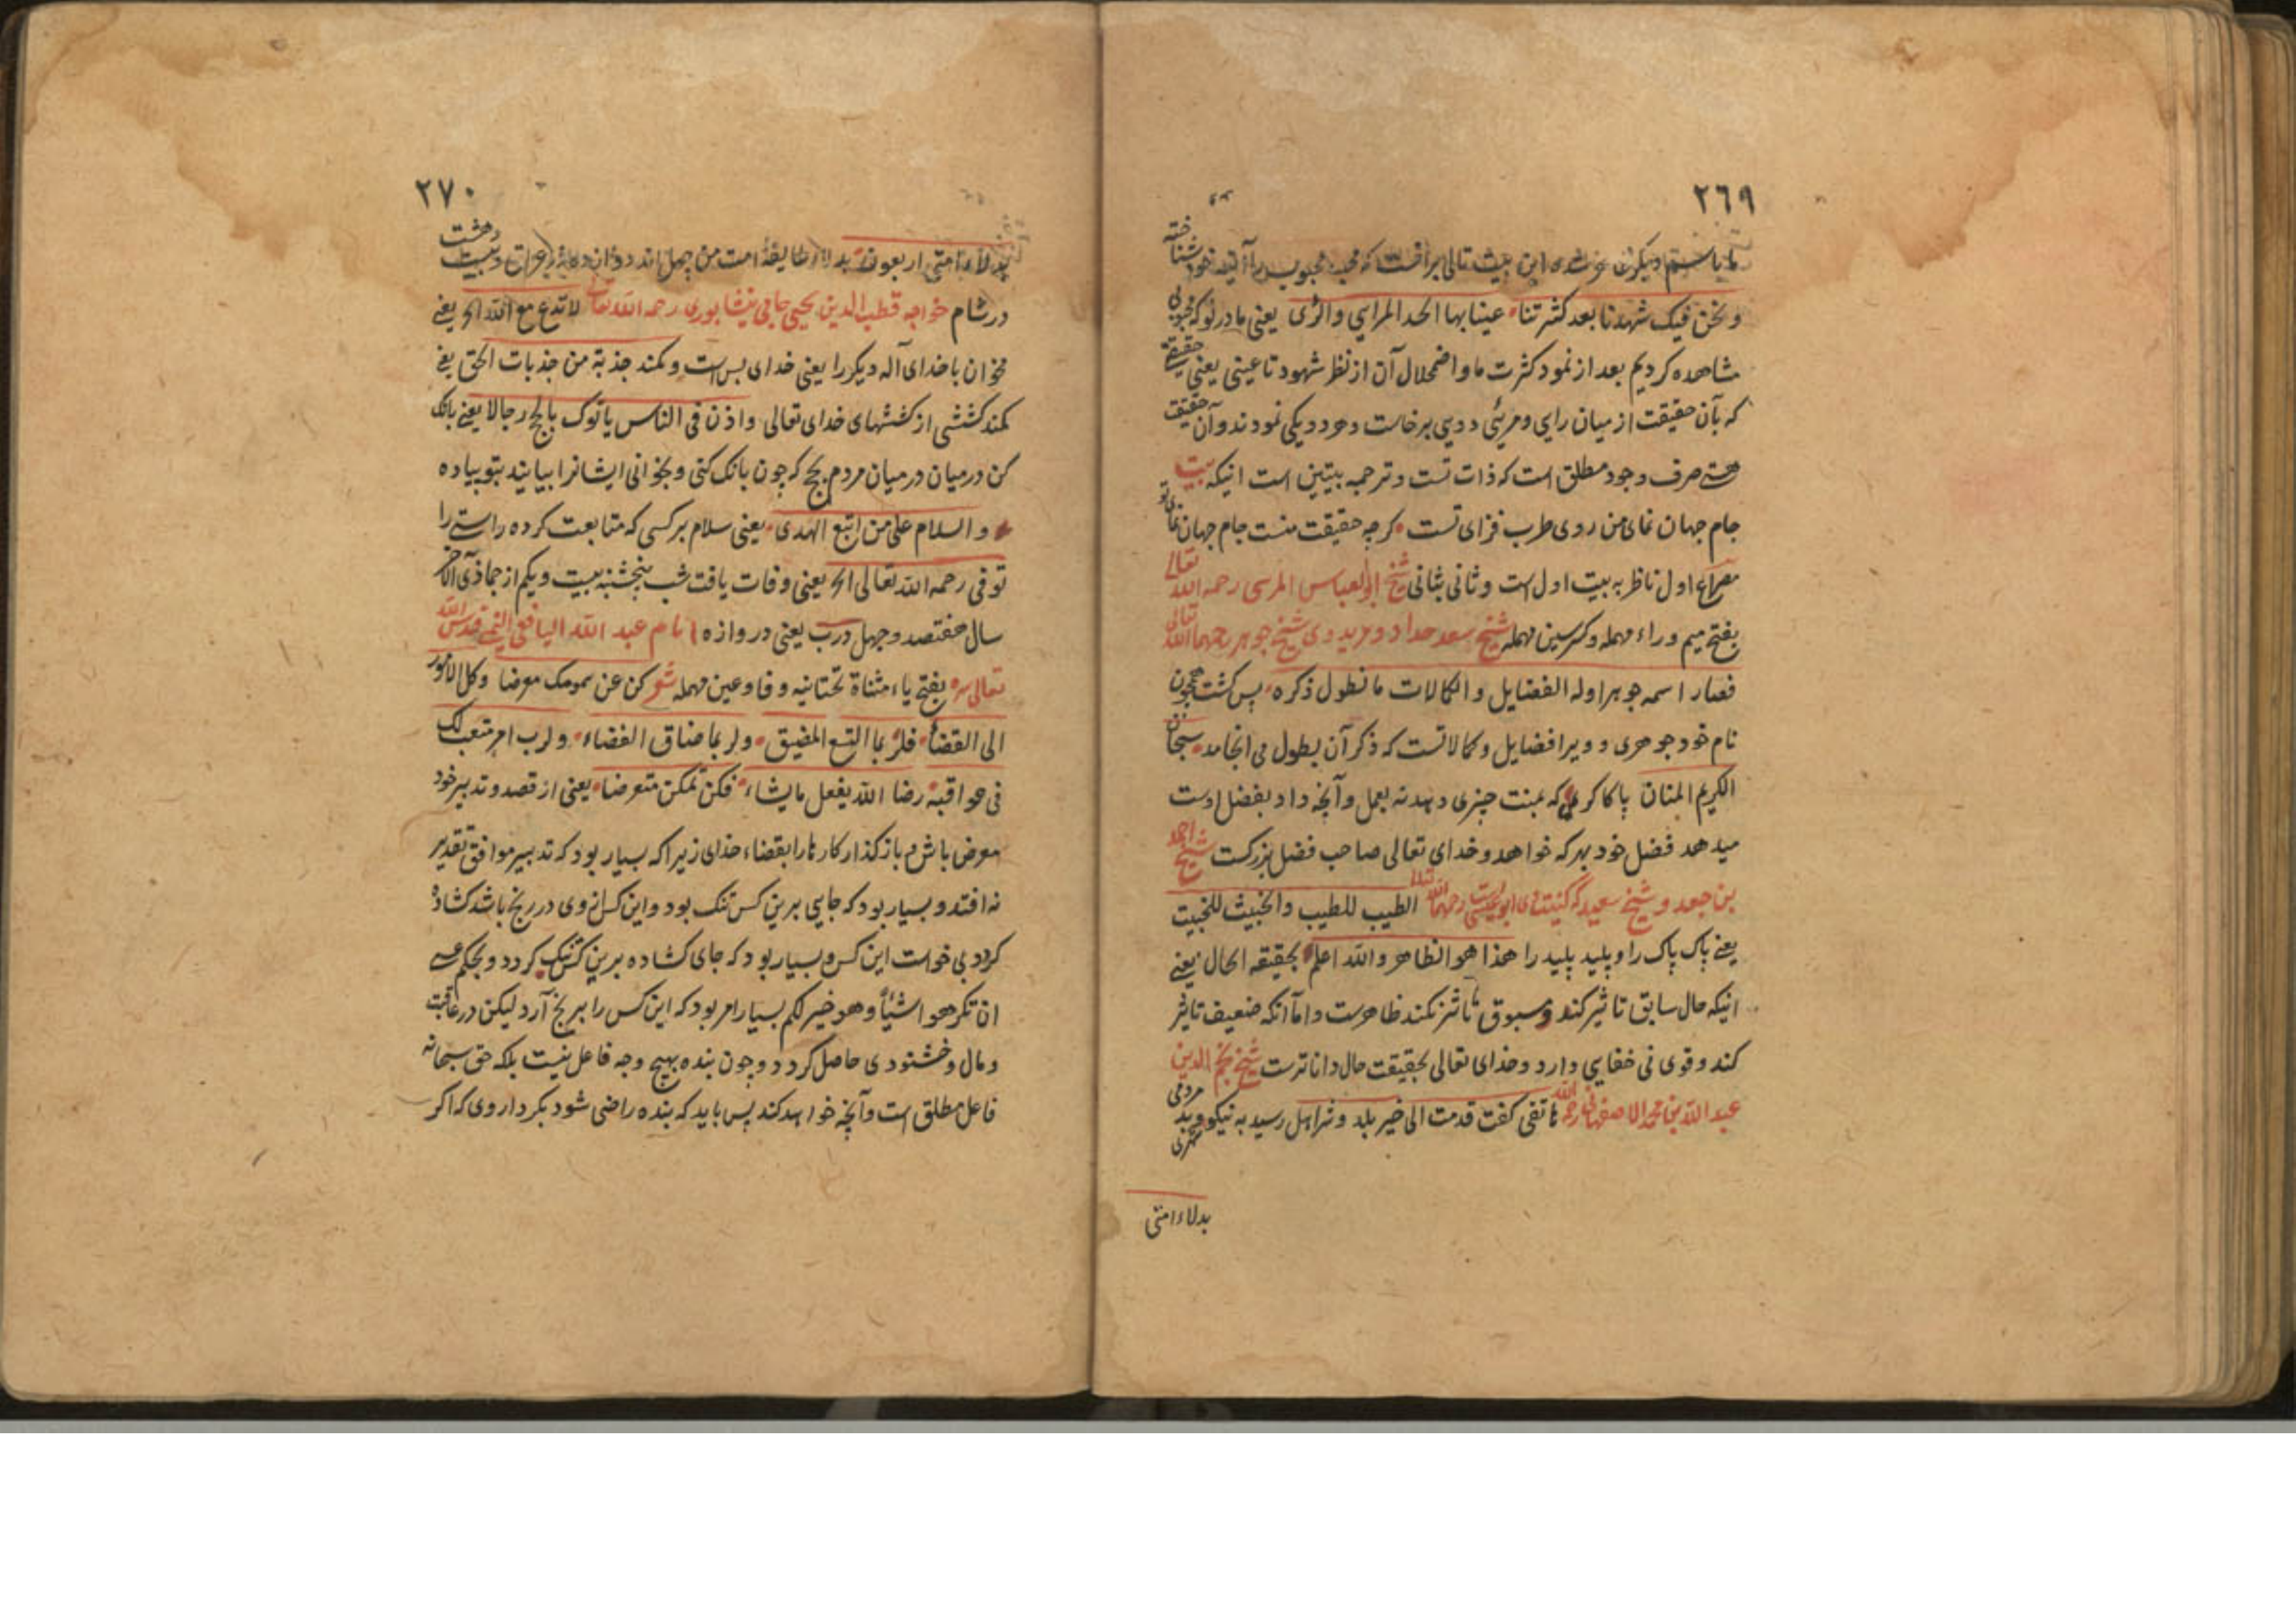 ٢٦٩
ونحن فیک شهدنا بعد کثرتنا عینا بها اتحد المرایی والرّی یعنی ما در تو که محبوبی
مشاهده کردیم بعد از نمود کثرت ما و اضمحلال آن از نظر شهود تا عینی یعنی حقیقتی
که بآن حقیقت از میان رایی و مریٔی دویی برخاست و هر دو یکی نمودند و آن حقیقت
هستی صرف و وجود مطلق است که ذات تست و ترجمه بیتین است اینکه بیت
جام جهان نمای من روی طرب فزای تست کرچه حقیقت منست جام جهان نمای تو
مصراع اول ناظر به بیت اول است و ثانی بثانی شیخ ابو العباس المرسی رحمه الله تعالی
بفتح میم و راء مهمله و کسر سین مهمله شیخ سعد حداد و مرید وی شیخ جوهر رحمهما الله تعالی
فصار اسمه جوهرا وله الفضایل و الکمالات ما نطول ذکره پس کشت همچون
نام خود جوهری و ویرا فضایل و کمالاتست که ذکر آن بطول می انجامد سبحان
الکریم المنان پاکا کریمی که بمنت چیزی دهد نه بعمل و آنچه داد بفضل اوست
میدهد فضل خود بهر که خواهد و خدای تعالی صاحب فضل بزرکست شیخ احمد
بن جعد و شیخ سعید که کنیت وی ابو عیسی است رحمهما الله تعالی الطیب للطیب والخبیث للخبیث
یعنی پاک پاک را و پلید پلید را هذا هو الظاهر والله اعلم بحقیقه الحال یعنی
اینکه حال سابق تاثیر کند و مسبوق تاثر نکند ظاهرست و اما آنکه ضعیف تاثیر
کند و قوی نی خفایی دارد و خدای تعالی بحقیقت حال داناترست شیخ نجم الدین
عبد الله بن محمد الاصفهانی رحمه الله هاتفی کفت قدمت الی خیر بلد و شر اهل رسیدی به نیکو شهری و بد مردمی
بدلاء امتی
٢٧٠
بدلاء امتی اربعون بدلا طایفهٔ امت من چهل اند دوازده در عراق و بیست و هشت
در شام خواجه قطب الدین یحیی جامی نیشابوری رحمه الله تعالی لا تدع مع الله الخ یعنی
مخوان با خدای آله دیکر را یعنی خدای بس است و کمند جذبة من جذبات الحق یعنی
کمند کششی از کششهای خدای تعالی واذن فی الناس یاتوک بالحج رجالا یعنی بانک
کن در میان در میان مردم بحج که چون بانک کنی و بخوانی ایشانرا بیایند بتو پیاده
و السلام علی من اتبع الهدی یعنی سلام بر کسی که متابعت کرده راستی را
توفی رحمه الله تعالی الخ یعنی وفات یافت شب پنجشنبه بیست و یکم از جماذی الآخر
سال هفتصد و چهل درب یعنی دروازه امام عبد الله الیافعی الیمنی قدس الله
تعالی سره بفتح یاء مثناة تحتانیه و فا و عین مهمله شعر کن عن همومک معرضا وکل الامور
الی القضا فلربما اتسع المضیق ولربما ضاق الفضاء ولرب امر متعب لک
فی عواقبه رضا الله یفعل ما یشاء فکن تمکن متعرضا یعنی از قصد و تدبیر خود
معرض باش و باز کذار کارها را بقضاء خدای زیراکه بسیار بود که تدبیر موافق تقدیر
نه افتد و بسیار بود که جایی برین کس تنک بود و این کس از وی در رنج باشد کشاده
کردد بی خواست این کس و بسیار بود که جای کشاده برین کس تنک کردد و بحکم عسی
ان تکرهوا شیئاً وهو خیر لکم بسیار امر بود که این کس را برنج آرد لیکن در عاقبت
و مال و خشنودی حاصل کردد و چون بنده بهیچ وجه فاعل نیست بلکه حق سبحانه
فاعل مطلق است و آنچه خواهد کند پس باید که بنده راضی شود بکردار وی که اکر